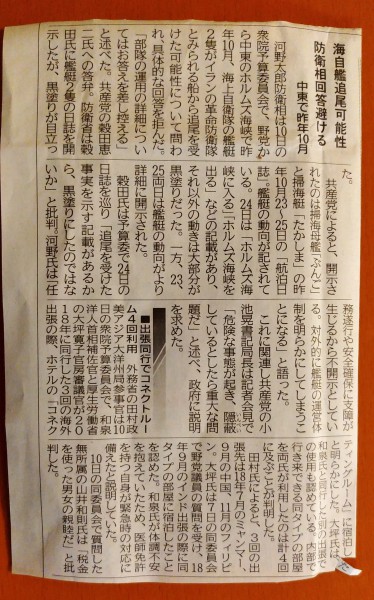 海自艦追尾可能性
防衛相回答避ける
中東で昨年10月
河野太郎防衛相は10日の
衆院予算委員会で、野党か
ら中東のホルムズ海峡で昨
年10月、海上自衛隊の艦艇
2隻がイランの革命防衛隊
とみられる船から追尾を受
けた可能性について問わ
れ、具体的な回答を拒んだ。
「部隊の運用の詳細につい
てはお答えを差し控える」
と述べた。共産党の穀田恵
二氏への答弁。防衛省は穀
田氏に艦艇2隻の日誌を開
示したが、黒塗りが目立っ
た。
共産党によると、開示さ
れたのは掃海母艦「ぶんご」
と掃海艇「たかしま」の昨
年10月23～25日の「航泊日
誌」。艦艇の動向が記されて
いる。24日は「ホルムズ海
峡に入る」「ホルムズ海峡を
出る」などの記載があり、
それ以外の動きは大部分が
黒塗りだった。一方、23、
25両日は艦艇の動向がより
詳細に開示された。
穀田氏は予算委で24日の
日誌を巡り「追尾を受けた
事実を示す記載があるか
ら、黒塗りにしたのではな
いか」と批判。河野氏は「任
務遂行や安全確保に支障が
生じるから不開示としてい
る。対外的に艦艇の運営体
制を明らかにしてしまうこ
とになる」と語った。
これに関連し共産党の小
池晃書記局長は記者会見で
「危険な事態が起き、隠蔽
しているとしたら重大な問
題だ」と述べ、政府に説明
を求めた。
■出張同行でコネクトルー
ム4回利用 外務省の田村
美アジア大洋州局参事官は10
日の衆院予算委員会で、和泉
洋人首相補佐官と厚生労働省
の大坪寛子官房審議官が20
18年に同行した3回の海外
出張の際、ホテルの「コネク
ティングルーム」に宿泊し
と明らかにした。大坪氏は、
和泉氏と同行した別の出張で
の使用も認めている。内部で
行き来できる同タイプの部屋
を両氏が利用したのは計4回
に及ぶことが判明した。
田村氏によると、3回の出
張先は18年7月のミャンマー、
9月の中国、11月のフィリピ
ン。大坪氏は7日の同委員会
で野党議員の質問を受け、18
年9月のインド出張の際に同
タイプの部屋に宿泊したこと
を認めた。和泉氏が体調不安
を抱えていたため、医師免許
を持つ自身が緊急時の対応に
備えたと説明していた。
10日の同委員会で質問した
無所属の山井和則氏は「税金
を使った男女の親睦だ」と批